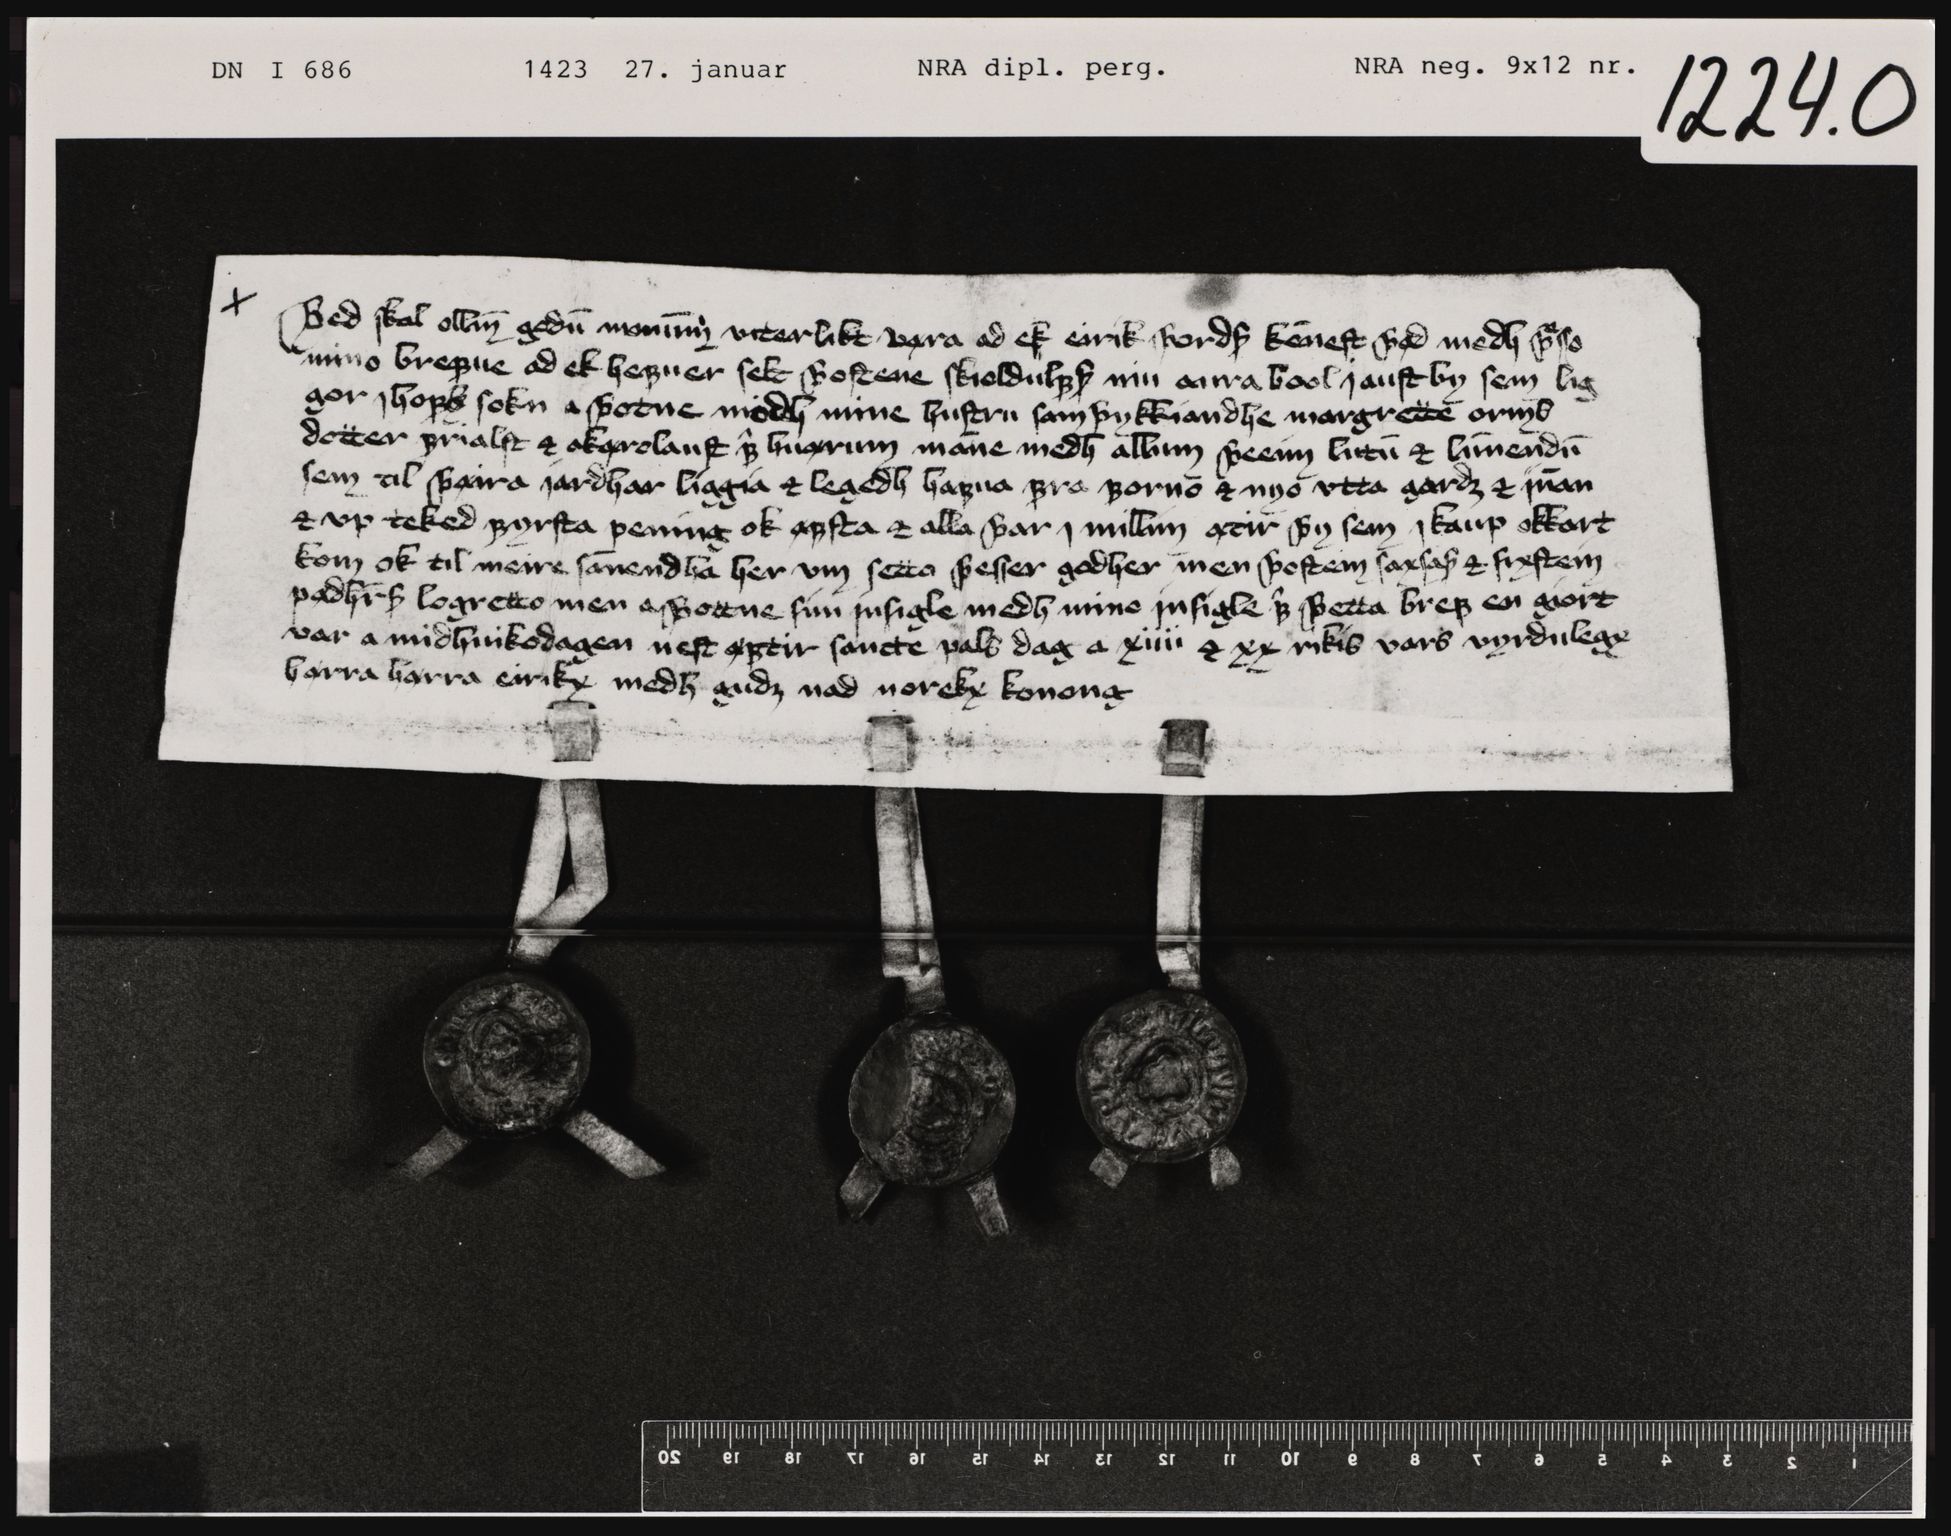 DN I 686 1423 27. januar NRA dipl. perg. NRA neg. 9x12 nr. 12240
þed skal ollm̄ godū monnum viterlikt vara ad ek eirik þordþ kēnest þad medh þesso
mino brefue ad ek hefuer selt þostene skioldulfþ niu aura bool j austby sem lig
gor j hofs sokn a þotne medh mine hustru samþykkiandhe margrette orms
dotter frialst & akærolaust f̄ huarium māne medh allum þeeim lutū & lūnendū
sem til þæira jardhar liggia & legedh hafua fra forno & nyo vtta gardz & jnān
& vp teked fyrsta pening ok øfsta & alla þar j millim ætir þy sem j kaup okkart
kom ok til meire sānendha her vm setto þesser godher men þostein saxsaþ & sixstein
logretto men a þottne sin jnsigle medh mino jnsigle f̄ þetta bref en giort
var a midhuikodagen nest æptir sancte pals dag a xiiii & xx rikis vars vyrdulegx
herra herra eirikx medh gudz nad norekx konong
20 19 18 17 16 15 14 13 12 11 10 9 8 7 6 5 4 3 2 1